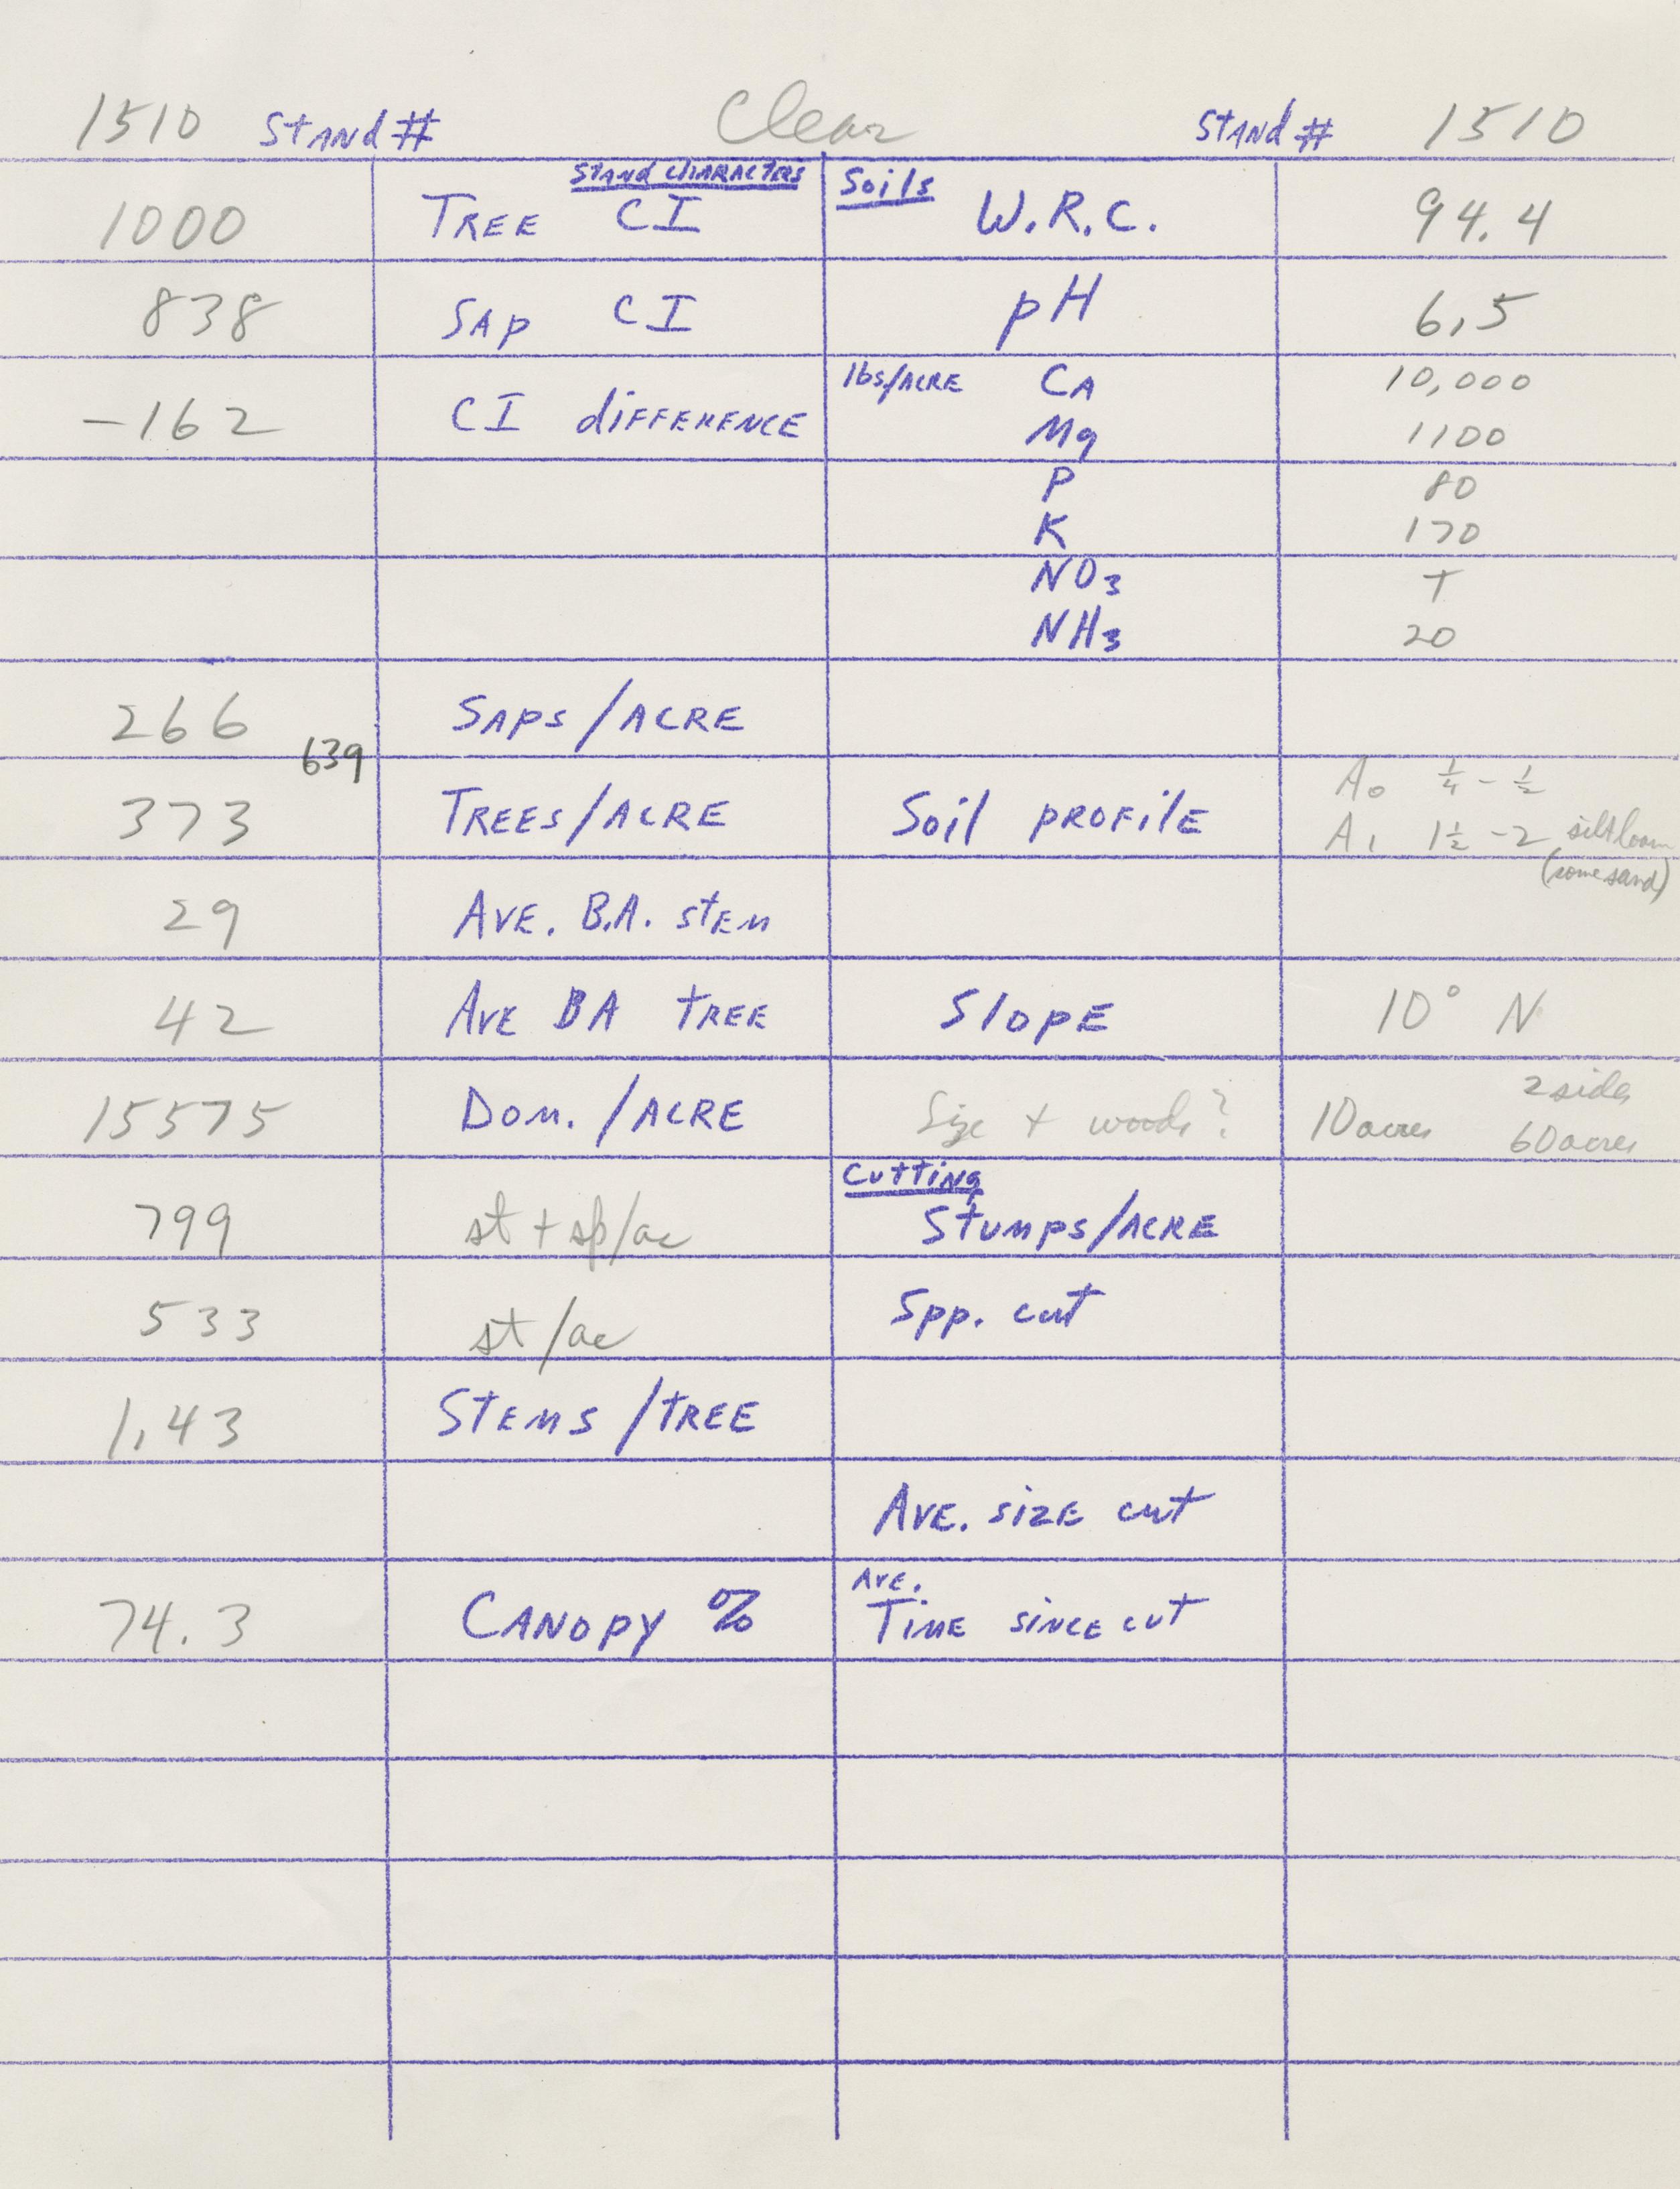 1510 Stand # Clear Stand # 1510
Stand Characters Soils
1000 Tree CI W.R.C. 94.4
838 Sap CI pH 6.5
lbs/Acre Ca 10,000
-162 CI difference Mg 1100
P 80
K 170
NO3 T
NH3 20
266 Saps/Acre
639
A0 1/4 - 1/2
373 Trees/Acre Soil profile A1 1 1/2 - 2 silt loam
(some sand)
29 Ave. B.A. stem
42 Ave BA tree Slope 10° N
2 sides
15575 Dom./Acre Size + woods? 10 acres 60 acres
Cutting
799 st + sp/ac Stumps/Acre
533 st/ac Spp. cut
1.43 Stems/tree
Ave. size cut
Ave.
74.3 Canopy % Time since cut